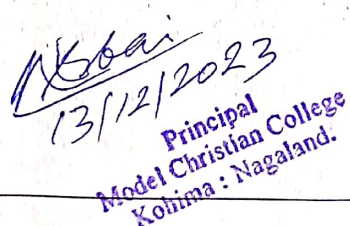 13/12/2023
Principal
Model Christian College
Kohima : Nagaland.